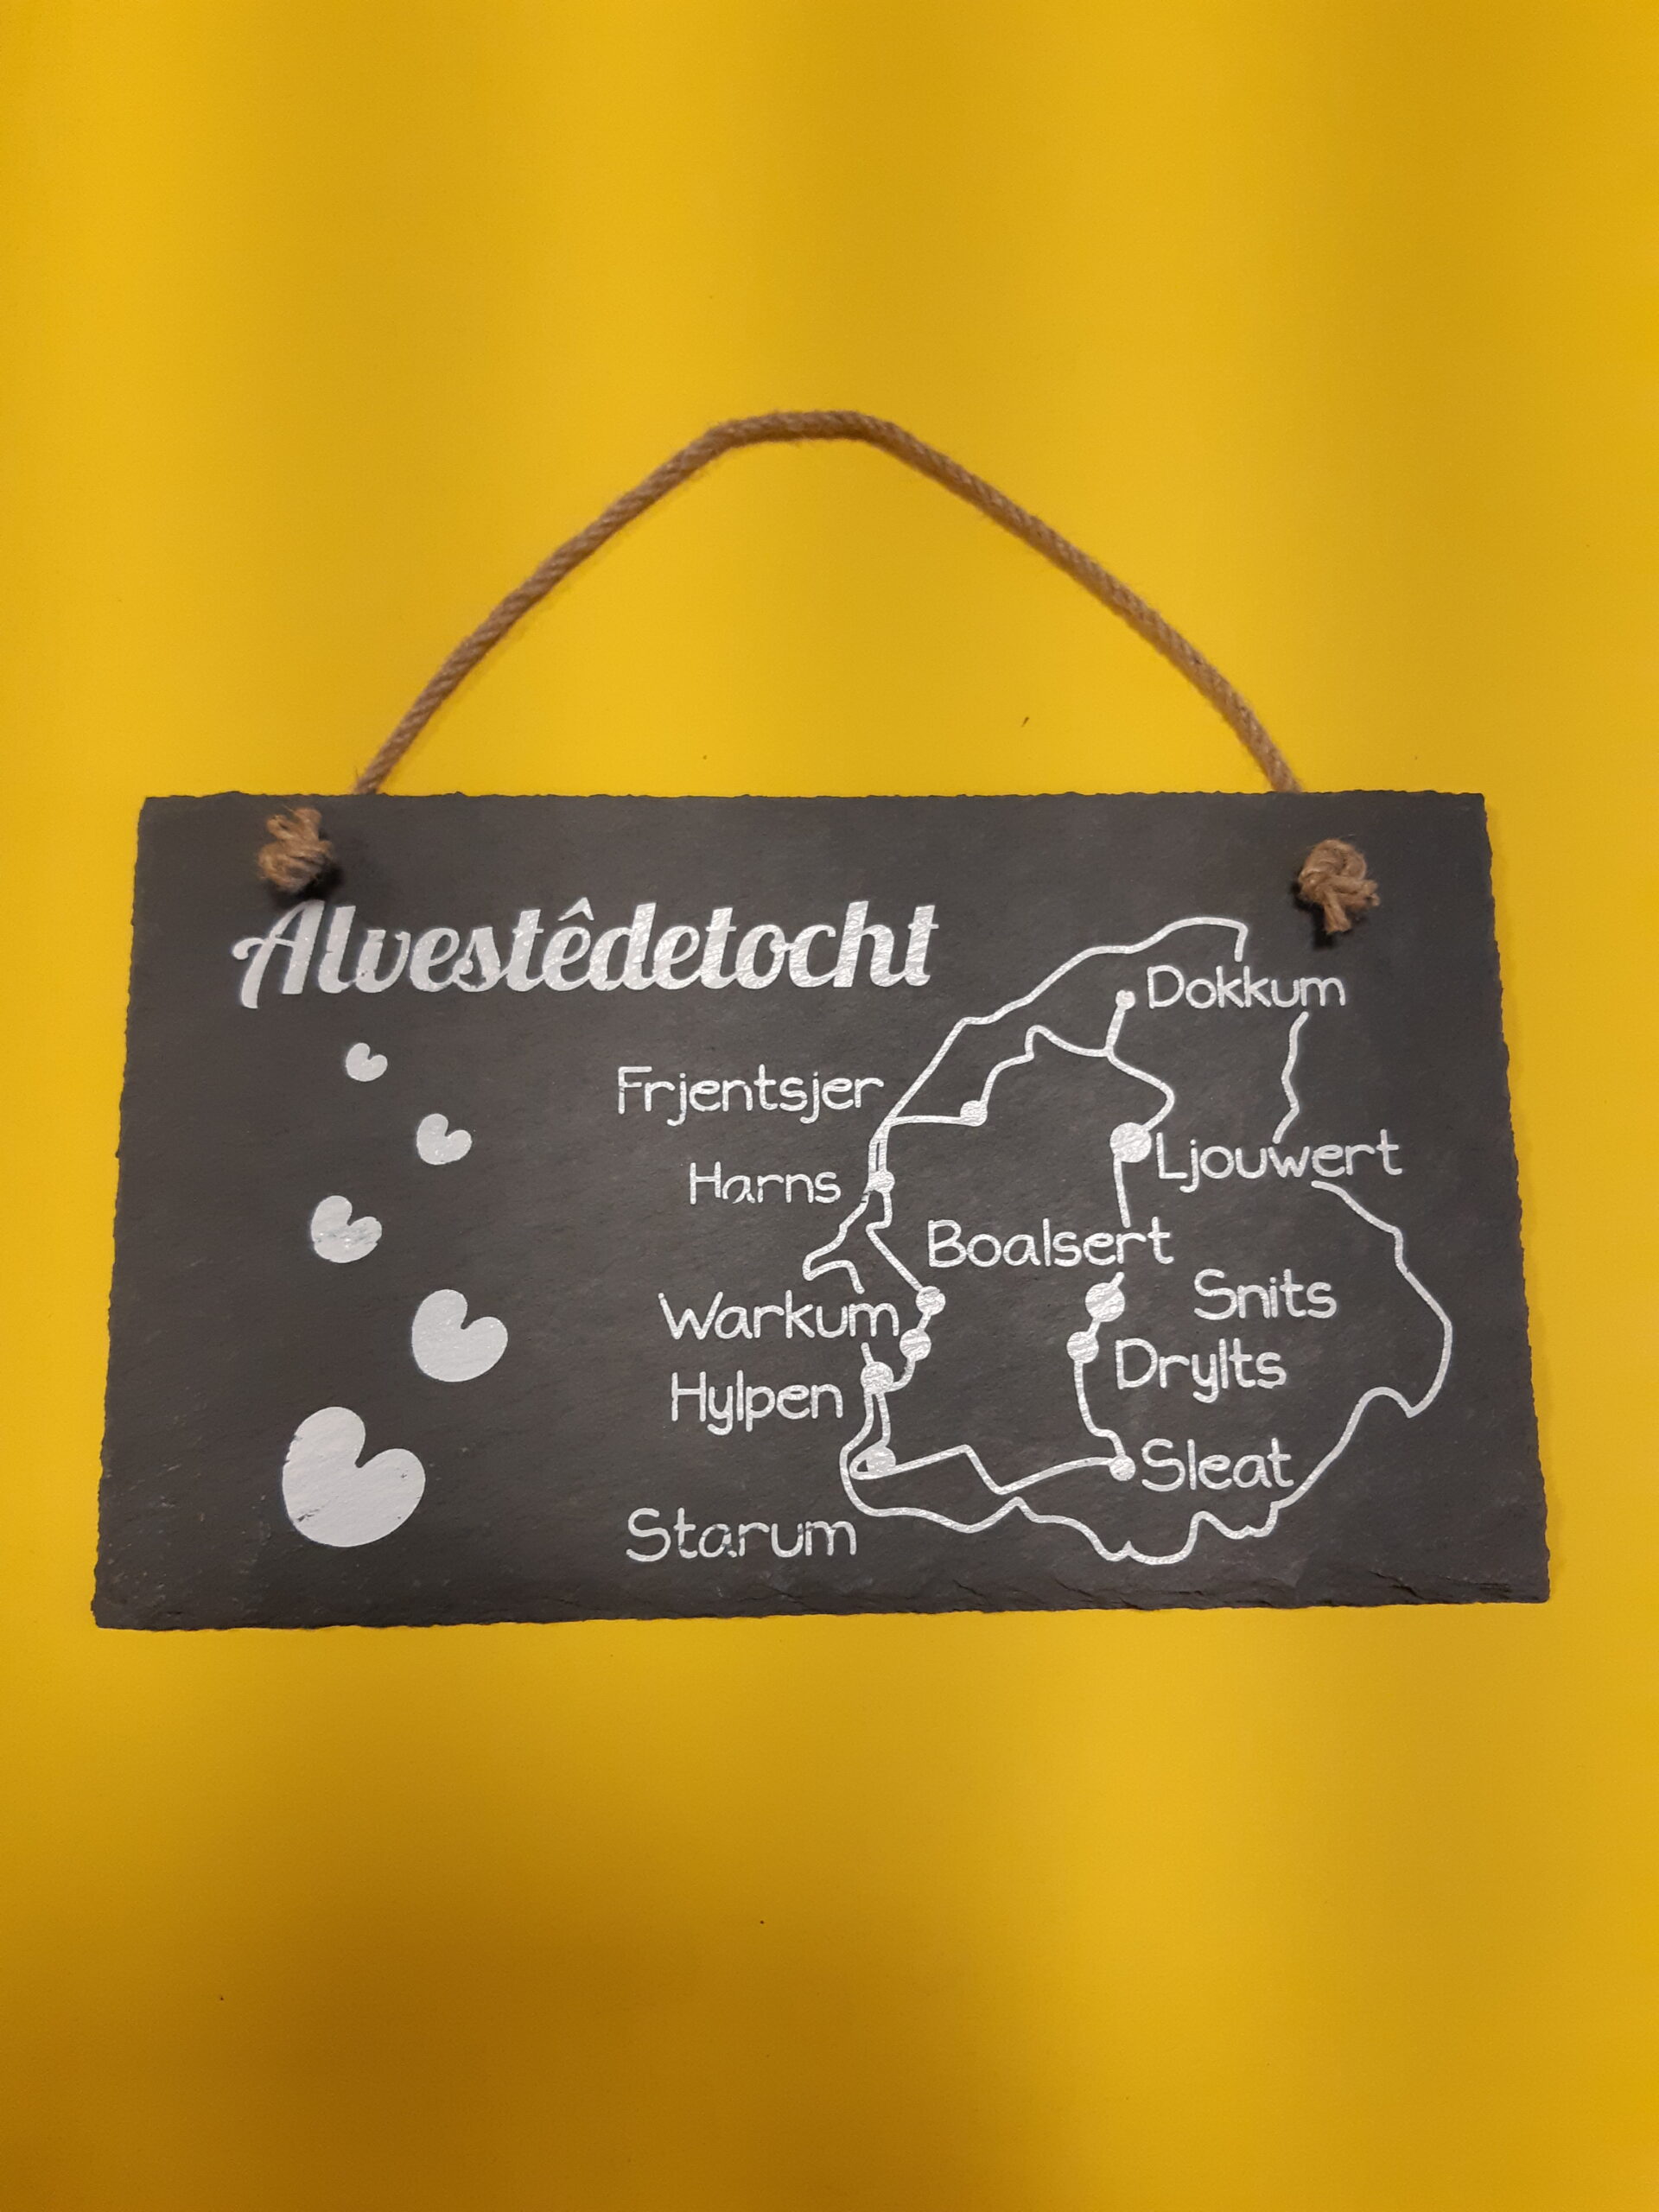 Alvestêdetocht
Dokkum
Frjentsjer
Ljouwert
Harns
Boalsert
Snits
Warkum
Drylts
Hylpen
Sleat
Starum